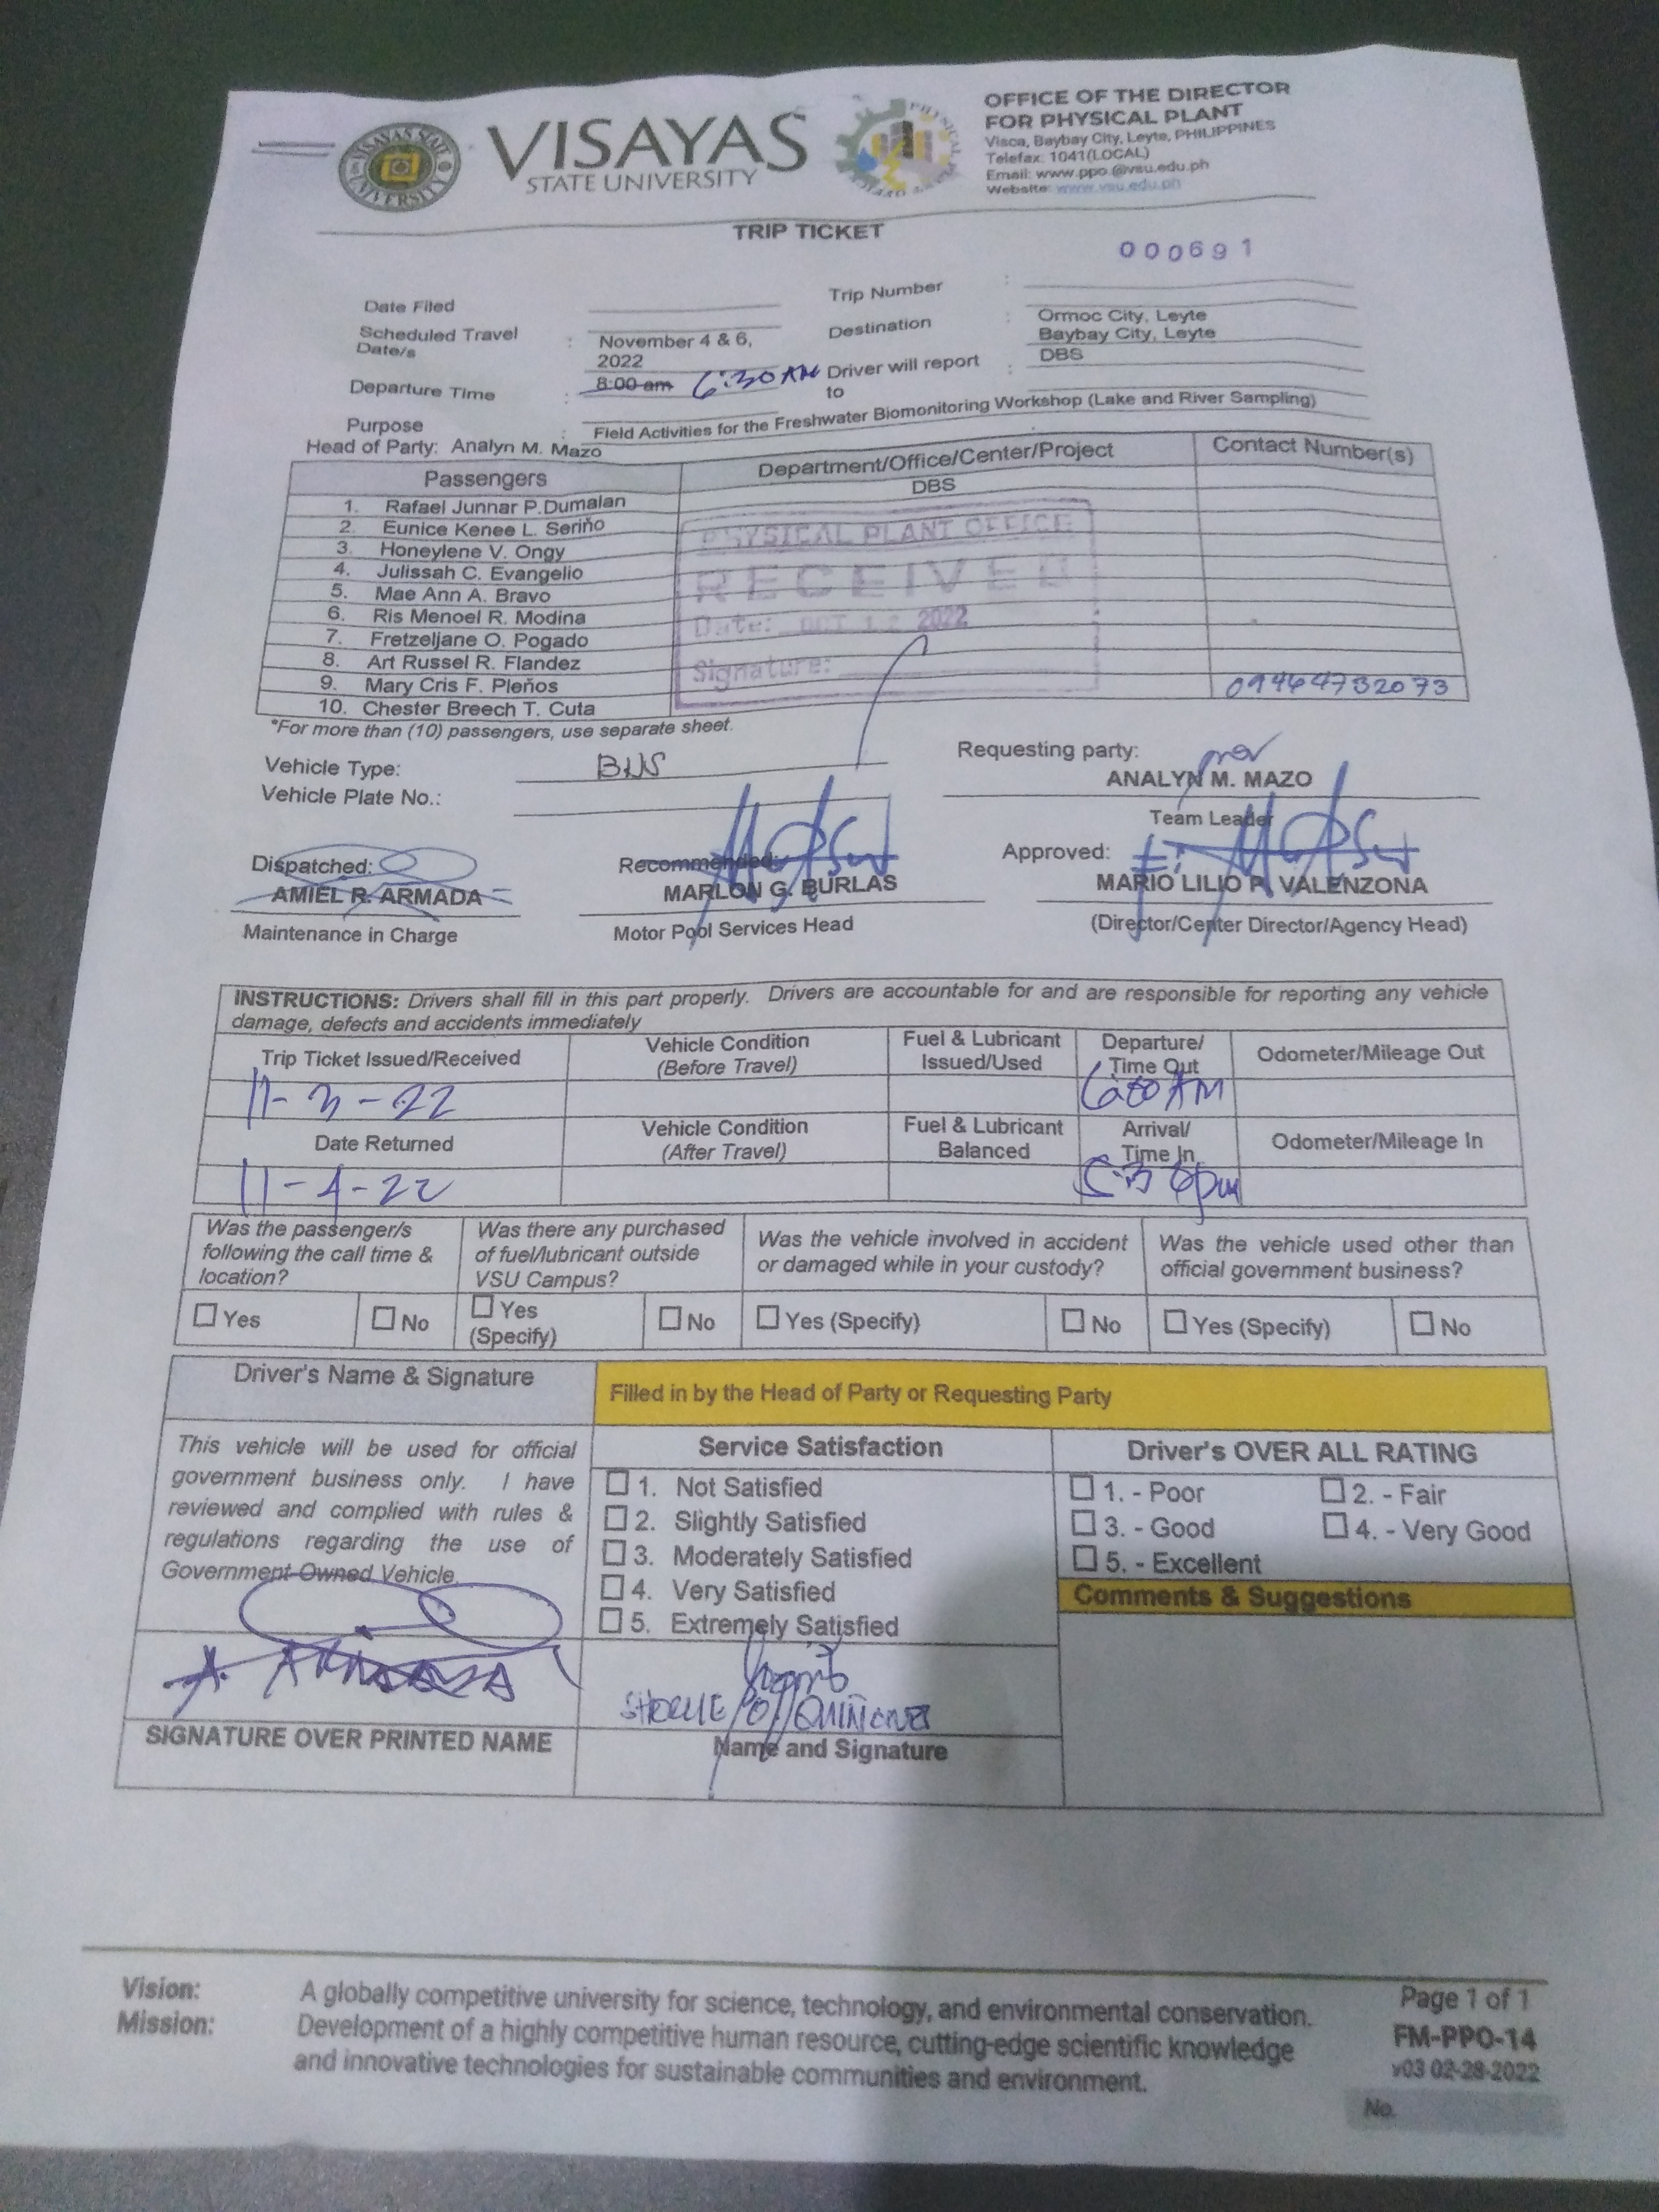 VISAYAS STATE UNIVERSITY
VISAYAS
STATE UNIVERSITY
OFFICE OF THE DIRECTOR
FOR PHYSICAL PLANT
Visca, Baybay City, Leyte, PHILIPPINES
Telefax: 1041(LOCAL)
Email: www.ppo @vsu.edu.ph
Website: www.vsu.edu.ph
TRIP TICKET
000691
Date Filed
Trip Number :
Scheduled Travel Date/s : November 4 & 6, 2022
Destination : Ormoc City, Leyte
Baybay City, Leyte
Departure Time : 8:00 am 6:30 AM
Driver will report to : DBS
Purpose : Field Activities for the Freshwater Biomonitoring Workshop (Lake and River Sampling)
Head of Party: Analyn M. Mazo
Passengers Department/Office/Center/Project Contact Number(s)
1. Rafael Junnar P.Dumalan DBS
2. Eunice Kenee L. Seriño
3. Honeylene V. Ongy
4. Julissah C. Evangelio
5. Mae Ann A. Bravo
6. Ris Menoel R. Modina
7. Fretzeljane O. Pogado
8. Art Russel R. Flandez
9. Mary Cris F. Pleños
10. Chester Breech T. Cuta 09464732073
PHYSICAL PLANT OFFICE
RECEIVED
Date: OCT 12 2022
Signature:
*For more than (10) passengers, use separate sheet.
Vehicle Type: BUS
Vehicle Plate No.:
Requesting party:
ANALYN M. MAZO
Team Leader
Dispatched: Recommended: Approved:
AMIEL R. ARMADA MARLON G. BURLAS MARIO LILIO P. VALENZONA
Maintenance in Charge Motor Pool Services Head (Director/Center Director/Agency Head)
INSTRUCTIONS: Drivers shall fill in this part properly. Drivers are accountable for and are responsible for reporting any vehicle
damage, defects and accidents immediately
Trip Ticket Issued/Received Vehicle Condition (Before Travel) Fuel & Lubricant Issued/Used Departure/ Time Out Odometer/Mileage Out
11-3-22 6:00 AM
Date Returned Vehicle Condition (After Travel) Fuel & Lubricant Balanced Arrival/ Time In Odometer/Mileage In
11-4-22 5:30pm
Was the passenger/s following the call time & location?
Was there any purchased of fuel/lubricant outside VSU Campus?
Was the vehicle involved in accident or damaged while in your custody?
Was the vehicle used other than official government business?
Yes No Yes (Specify) No Yes (Specify) No Yes (Specify) No
Driver's Name & Signature
Filled in by the Head of Party or Requesting Party
This vehicle will be used for official
government business only. I have
reviewed and complied with rules &
regulations regarding the use of
Government Owned Vehicle.
A. ARMADA
SIGNATURE OVER PRINTED NAME
Service Satisfaction
1. Not Satisfied
2. Slightly Satisfied
3. Moderately Satisfied
4. Very Satisfied
5. Extremely Satisfied
QUIÑONES
Name and Signature
Driver's OVER ALL RATING
1. - Poor 2. - Fair
3. - Good 4. - Very Good
5. - Excellent
Comments & Suggestions
Vision: A globally competitive university for science, technology, and environmental conservation.
Mission: Development of a highly competitive human resource, cutting-edge scientific knowledge
and innovative technologies for sustainable communities and environment.
Page 1 of 1
FM-PPO-14
v03 02-28-2022
No.